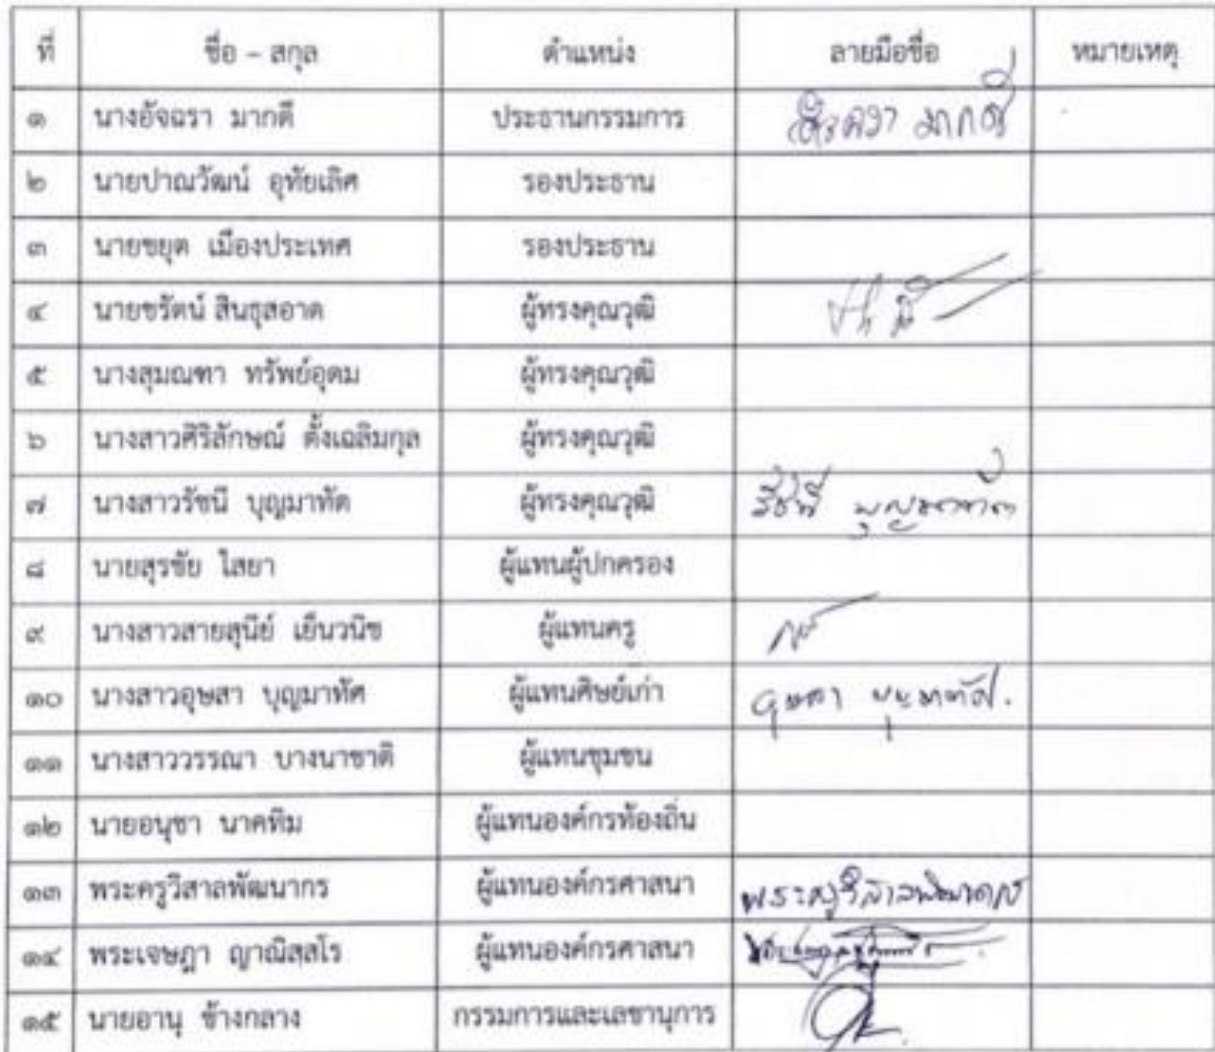 ที่ ชื่อ – สกุล ตำแหน่ง ลายมือชื่อ หมายเหตุ
๑ นางอัจฉรา มากดี ประธานกรรมการ อัจฉรา มากดี
๒ นายปาณวัฒน์ อุทัยเลิศ รองประธาน
๓ นายชยุต เมืองประเทศ รองประธาน
๔ นายชรัตน์ สินธุสอาด ผู้ทรงคุณวุฒิ
๕ นางสุมณฑา ทรัพย์อุดม ผู้ทรงคุณวุฒิ
๖ นางสาวศิริลักษณ์ ตั้งเฉลิมกุล ผู้ทรงคุณวุฒิ
๗ นางสาวรัชนี บุญมาทัต ผู้ทรงคุณวุฒิ รัชนี บุญมาทัต
๘ นายสุรชัย ไสยา ผู้แทนผู้ปกครอง
๙ นางสาวสายสุนีย์ เย็นวนิช ผู้แทนครู
๑๐ นางสาวอุษสา บุญมาทัศ ผู้แทนศิษย์เก่า อุษสา บุญมาทัศ.
๑๑ นางสาววรรณา บางนาชาติ ผู้แทนชุมชน
๑๒ นายอนุชา นาคทิม ผู้แทนองค์กรท้องถิ่น
๑๓ พระครูวิสาลพัฒนากร ผู้แทนองค์กรศาสนา พระครูวิสาลพัฒนากร
๑๔ พระเจษฎา ญาณิสฺสโร ผู้แทนองค์กรศาสนา
๑๕ นายอานุ ช้างกลาง กรรมการและเลขานุการ